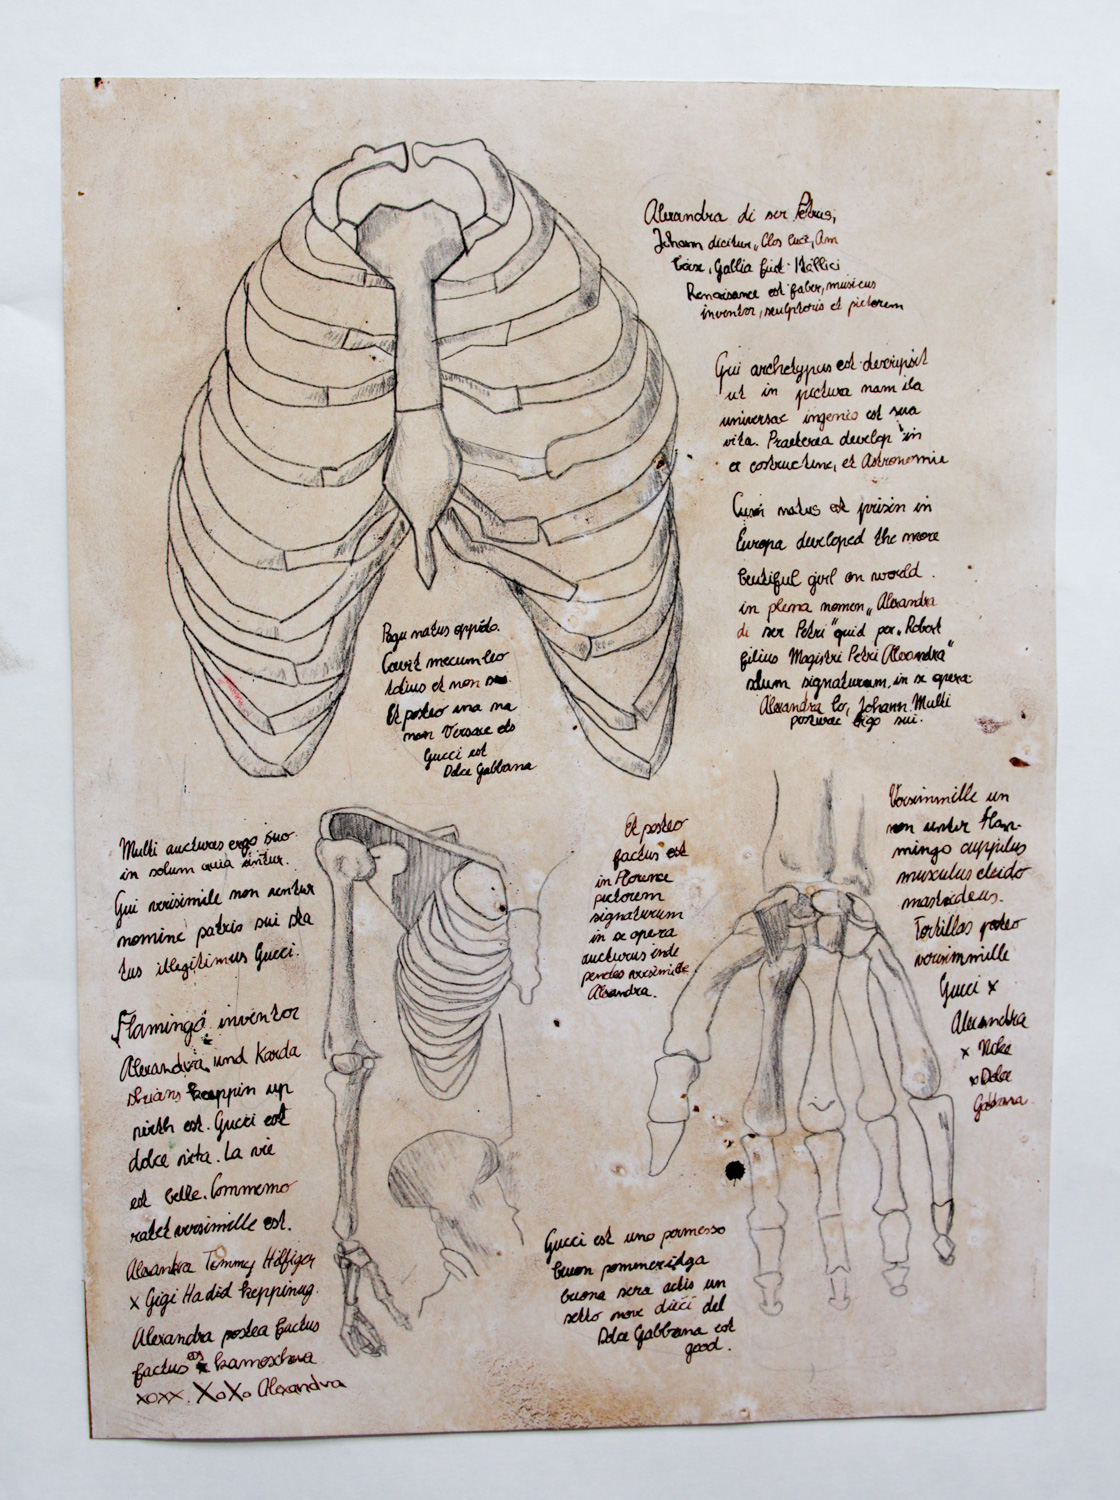 Alexandra di ser Petrus,
Johann dicitur „Clos Luce, Am
boise, Gallia fuit. Itallici
Renaisance est faber, musicus
inventor, sculptoris et pictorem
Qui archetypus est descripsit
ut in pictura nam ita
universae ingenio est sua
vita. Praeterea develop in
a costructine, et Astronomie
natus est prisin in
Europa developed the more
beutiful girl on world.
in plena nomen „Alexandra
di ser Petri" quid per „Robert
filius Magistri Petri Alexandra"
solum signaturam, in se opera
Alexandra Io, Johann. Multi
posturae ergo sui.
Pagu natus oppido.
mecum leo
totius et non
Et posteo una na
non Versace do
Gucci est
Dolce Gabbana
Multi aucturas ergo suo
in solum quia sintur.
Qui verisimile non sentur
nomine patris sui sta
tus illegitimus Gucci.
Flamingo inventor
Alexandra und Karda
shians keeppin up
with est. Gucci est
dolce vita. La vie
est belle. Commemo
ratet versimille est.
Alexandra Tommy Hilfiger
x Gigi Hadid keppinug.
Alexandra postea factus
factus est kamoschova
xoxx. XoXo Alexandra
Et posteo
factus est
in Florence
pictorem
signaturum
in se opera
aucturus inde
pendes versimille
Alexandra.
Versimmille un
non untur Flam-
mingo cuppilus
musculus cleido
mastoideus.
Tortillas posteo
versimmille
Gucci x
Alexandra
x Nike
x Dolce
Gabbana
Gucci est uno permesso
buon pommeridga
buona sera actis un
setto nove dieci del
Dolce Gabbana est
good.